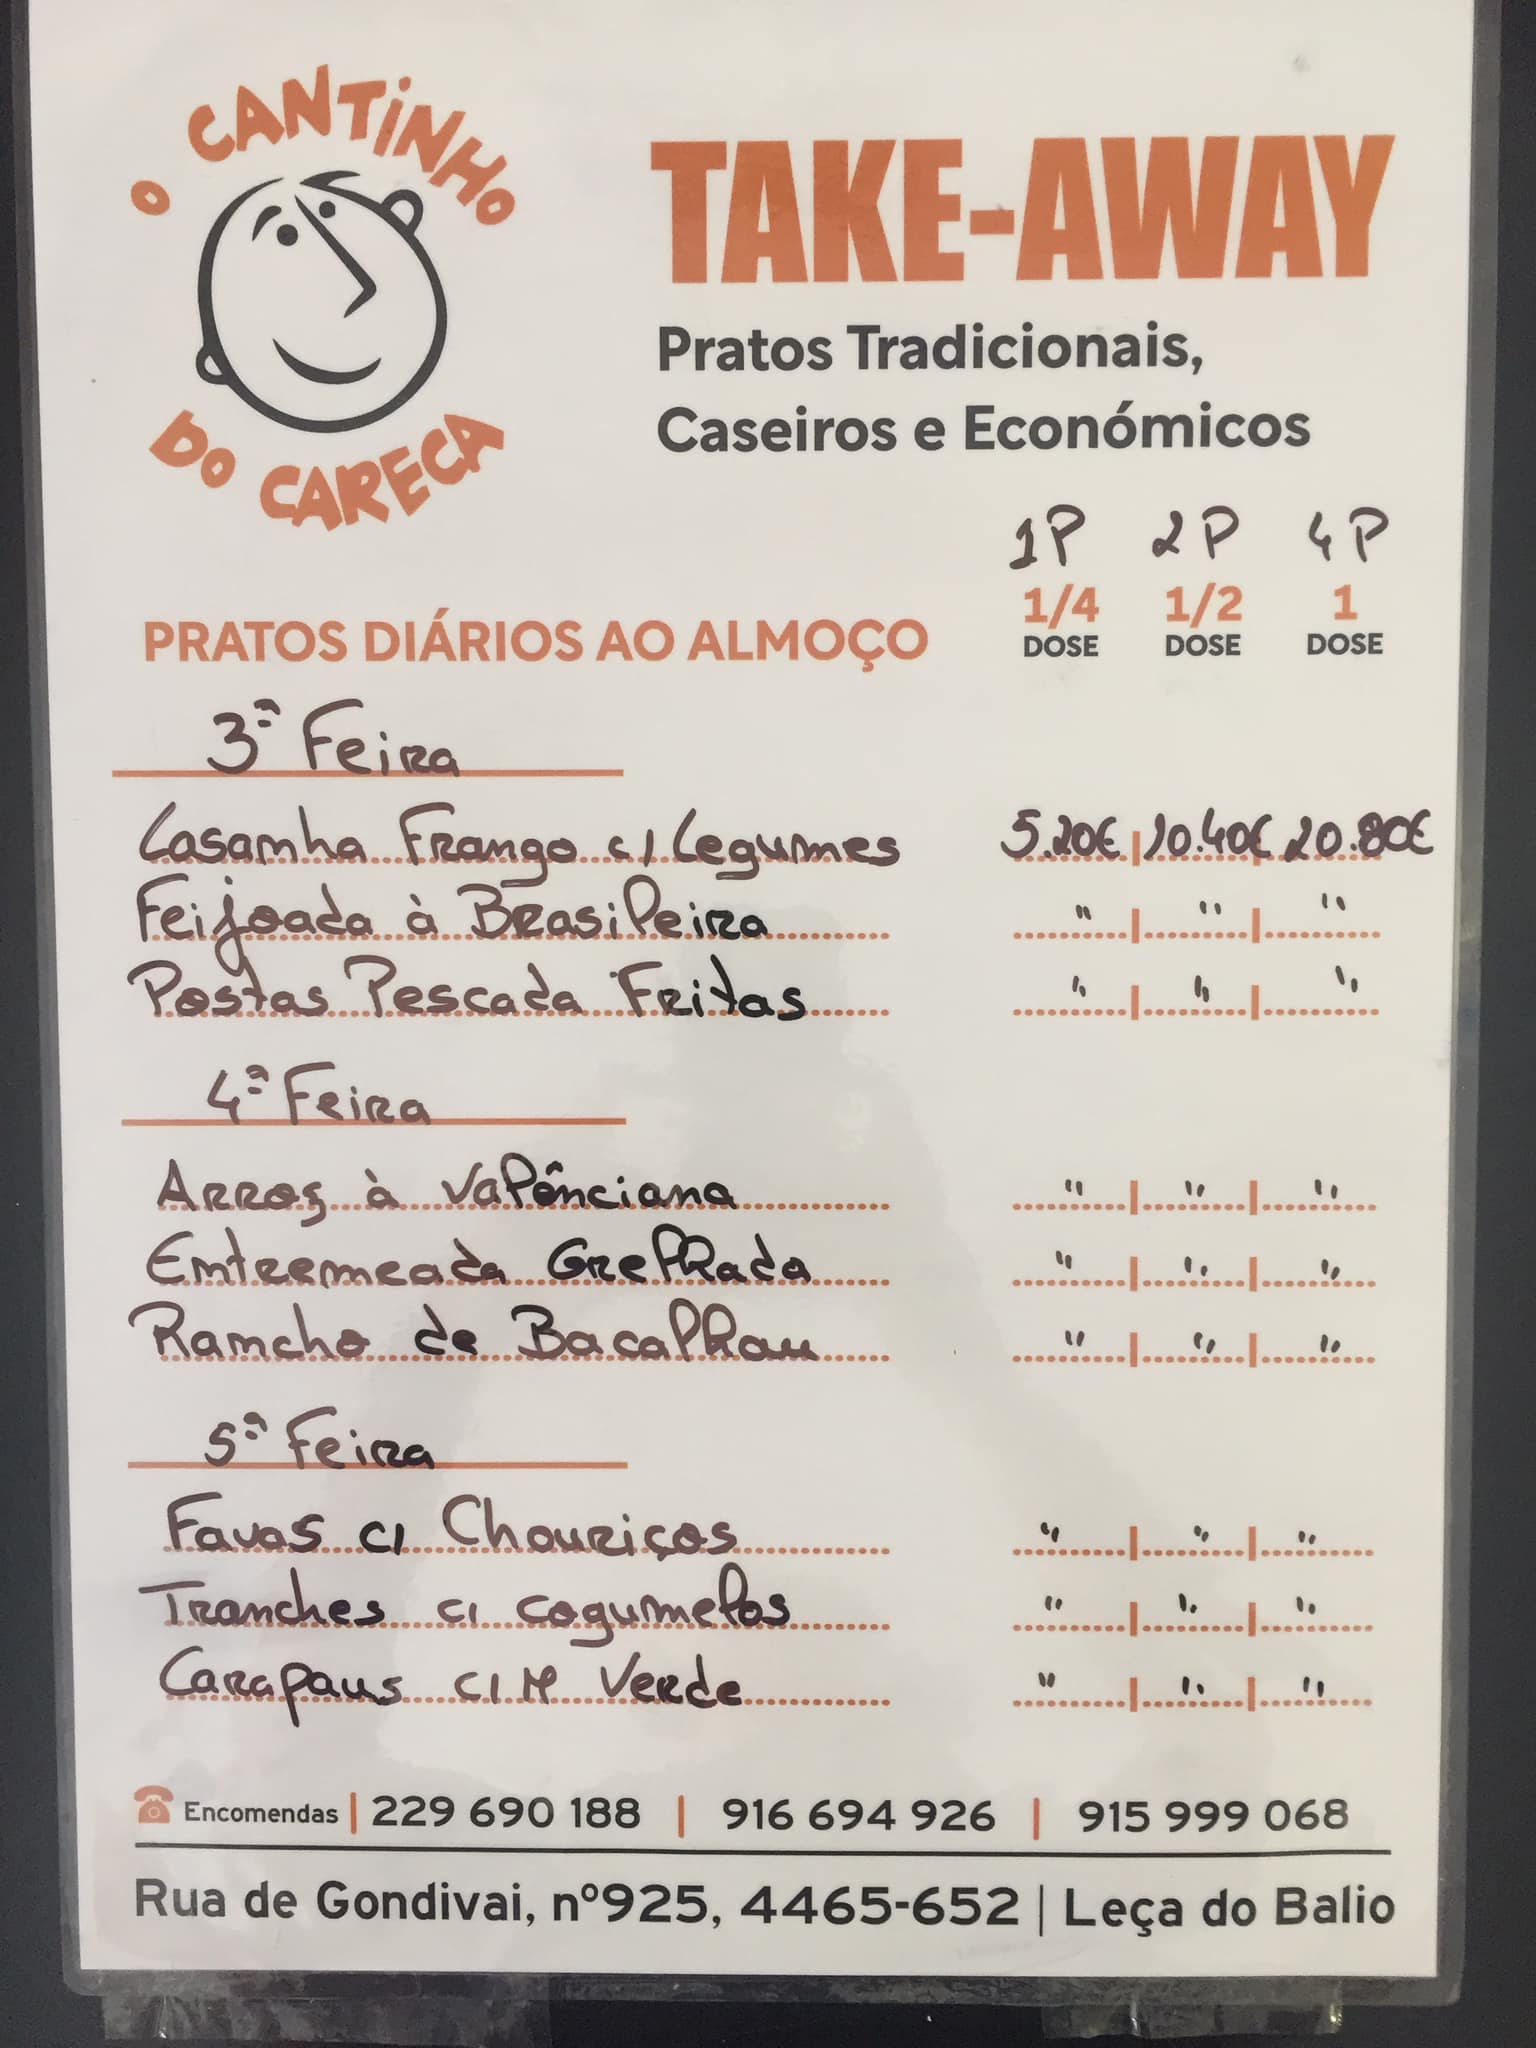 O CANTINHO
DO CARECA
TAKE-AWAY
Pratos Tradicionais,
Caseiros e Económicos
1P 2P 4P
1/4 1/2 1
DOSE DOSE DOSE
PRATOS DIÁRIOS AO ALMOÇO
3ª Feira
Lasanha Frango c/ Legumes 5.20€ | 10.40€ 20.80€
Feijoada à Brasileira " | " | "
Postas Pescada Fritas " | " | "
4ª Feira
Arroz à Valênciana " | " | "
Entremeada Grelhada " | " | "
Rancho de Bacalhau " | " | "
5ª Feira
Favas c/ Chouriços " | " | "
Tranches c/ cogumelos " | " | "
Carapaus c/ M Verde " | " | "
Encomendas | 229 690 188 | 916 694 926 | 915 999 068
Rua de Gondivai, nº925, 4465-652 | Leça do Balio